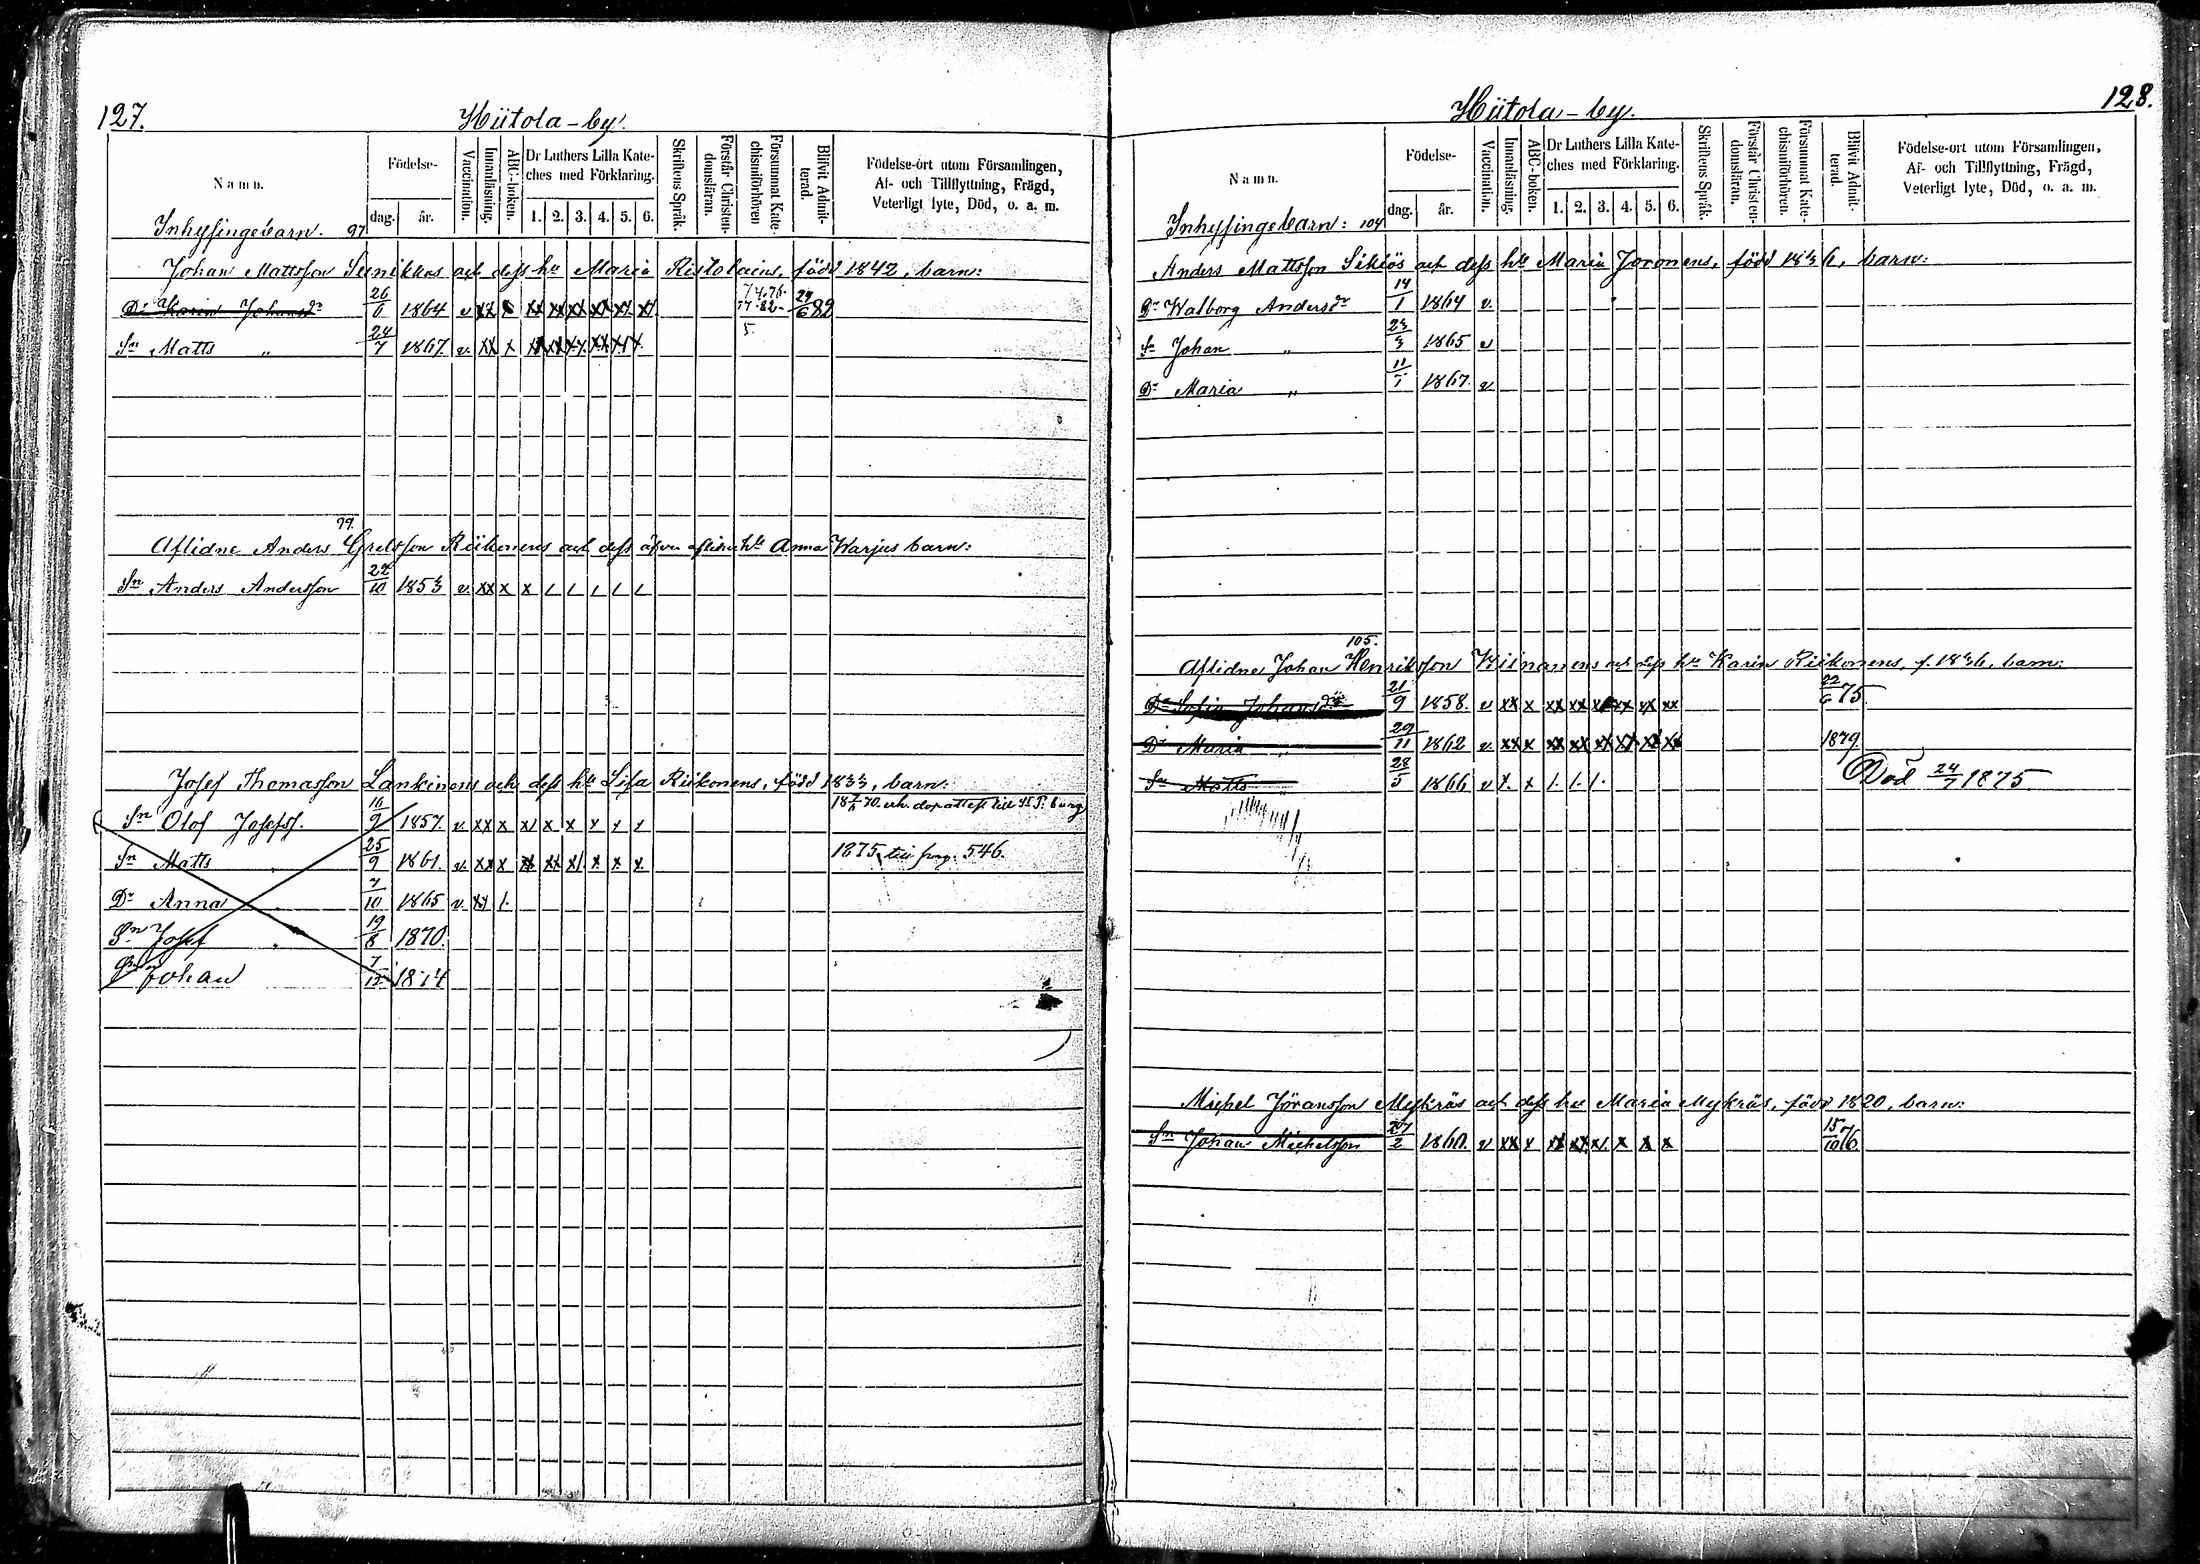 127.
Hiitola-by.
Namn.
Födelse-
dag.
år.
Vaccination.
Innanläsning.
ABC-boken.
Dr Luthers Lilla Kate-
ches med Förklaring.
1. 2. 3. 4. 5. 6.
Skriftens Språk.
Förstår Christen-
domsläran.
Försummat Kate-
chismiförhören
Blifvit Admit-
terad.
Födelse-ort utom Församlingen,
Af- och Tillflyttning, Frägd,
Veterligt lyte, Död, o. a. m.
Inhysingebarn. 97
Johan Mattsson och dess hu Maria född 1842, barn:
Dr Karin Johansdr 26/6 1864 v xx x xx xx xx xx xx 74.76. 77.82. 24/6 82
Sn Matts " 24/7 1867. v. xx x 5.
99.
Aflidne Anders Grelsson Riikonens och dess äfven aflidne hu Anna Warjus barn:
Sn Anders Andersson 22/10 1853 v. xx x x / / / / /
Josef Thomasson Lankinens och dess hu Lisa Riikonens, född 1833, barn:
Sn Olof Josefss. 16/9 1857. v. xx x x x x x x x
Sn Matts 25/9 1861. v. xx x x xx x x x x 1875 till pag. 546.
Dr Anna 7/10 1865 v. xx /.
Sn Josef 19/8 1870.
Sn Johan
128.
Hiitola-by.
Namn.
Födelse-
dag.
år.
Vaccination.
Innanläsning.
ABC-boken.
Dr Luthers Lilla Kate-
ches med Förklaring.
1. 2. 3. 4. 5. 6.
Skriftens Språk.
Förstår Christen-
domsläran.
Försummat Kate-
chismiförhören.
Blifvit Admit-
terad.
Födelse-ort utom Församlingen,
Af- och Tillflyttning, Frägd,
Veterligt lyte, Död, o. a. m.
Inhysingebarn: 104
Anders Mattsson Sikiös och dess hu Maria Joronens, född 1836, barn:
Dr Walborg Andersdr 14/1 1864 v.
Sn Johan " 23/3 1865 v
Dr Maria " 1867. v
105.
Aflidne Johan Henriksson Kiinanens och dess hu Karin Riikonens, f. 1836, barn:
Dr Sofia Johansdr 21/9 1858. v xx x xx xx xx xx xx xx 22/6 75.
Dr Maria " 29/11 1862 v. xx x xx xx xx xx xx xx 1879.
Sn Matts " 28/5 1866 v x. x /. /. /. Död 24/7 1875.
Michel Jöransson Mykräs och dess hu Maria Mykräs, född 1820, barn:
Sn Johan Michelsson 27/2 1860. v xx x xx xx x. x x x 15/10 76.